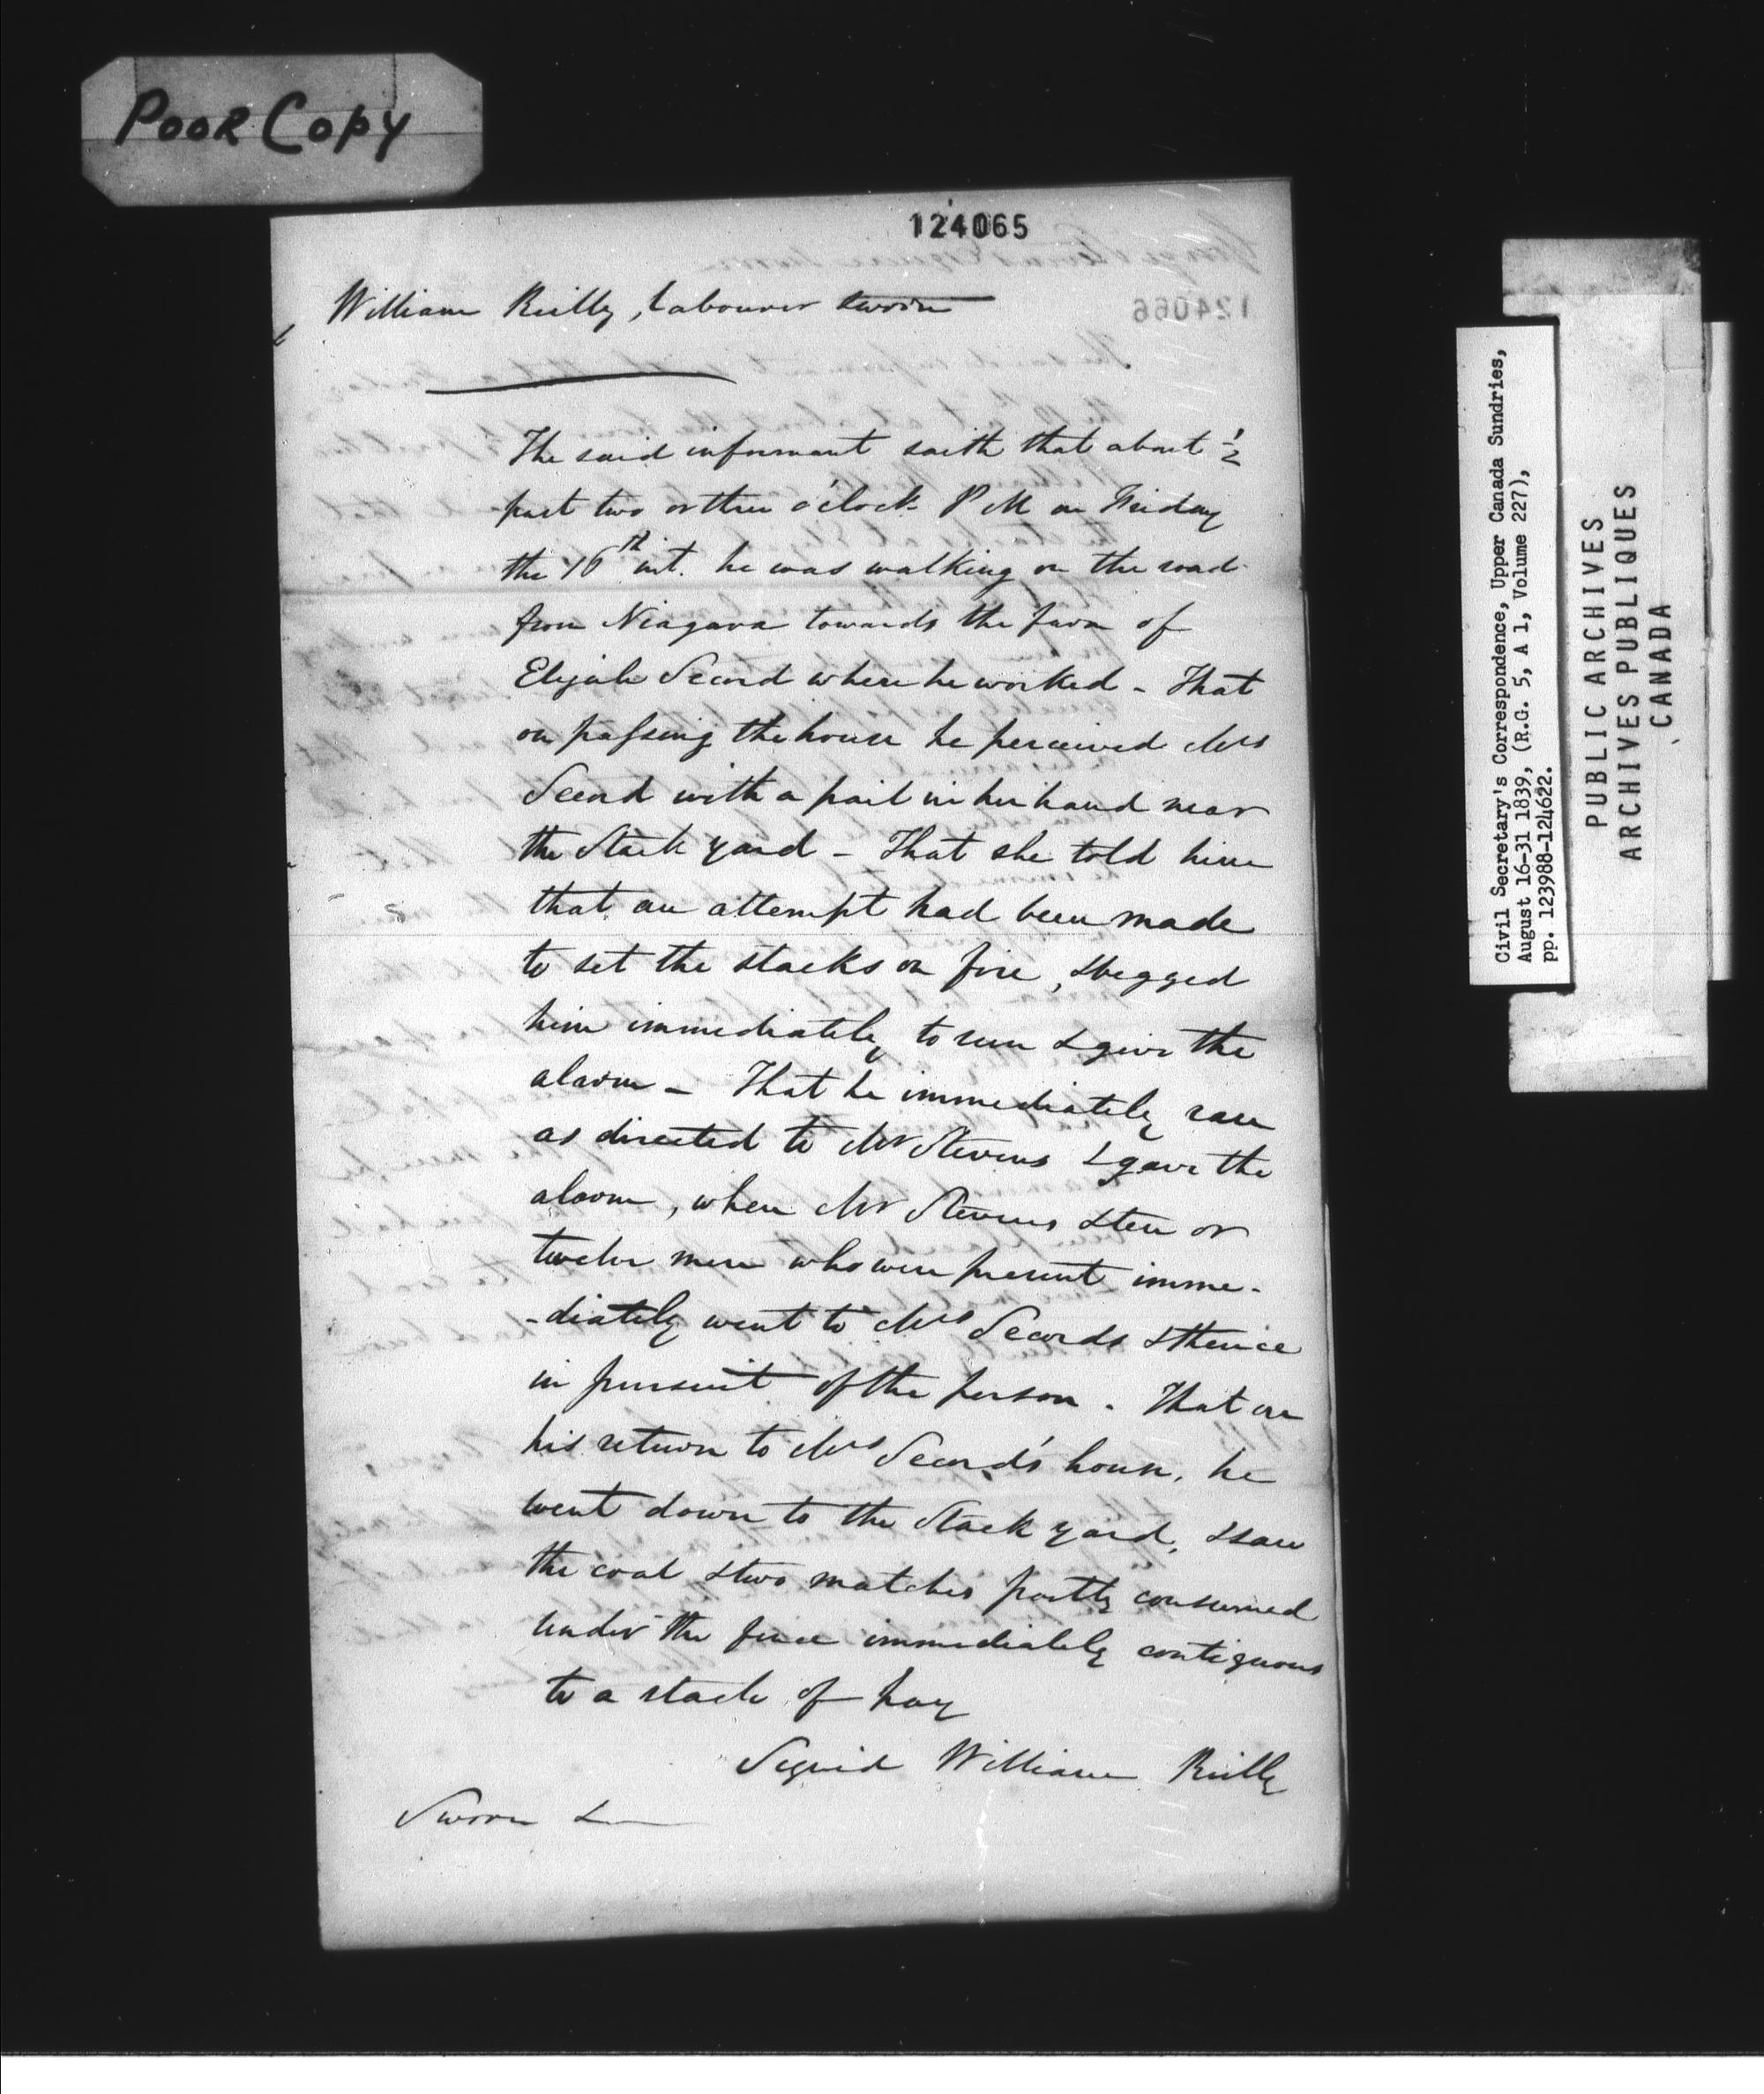 POOR COPY
124065
124066
William Reilly, Labourer sworn
The said informant saith that about ½
past two or three o'clock P M on Friday
the 16th inst. he was walking on the road
from Niagara towards the farm of
Elijah Secord where he worked - That
on passing the house he perceived Mrs
Secord with a pail in her hand near
the Stack yard - That she told him
that an attempt had been made
to set the stacks on fire, & begged
him immediately to run & give the
alarm - That he immediately ran
as directed to Mr Stevens & gave the
alarm, when Mr Stevens & ten or
twelve men who were present imme-
-diately went to Mrs Secords & thence
in pursuit of the person. That on
his return to Mrs Secord's house, he
went down to the Stack yard, & saw
the coal & two matches partly consumed
under the fence immediately contiguous
to a stack of hay
Signed William Reilly
Sworn &
Civil Secretary's Correspondence, Upper Canada Sundries,
August 16-31 1839, (R.G. 5, A 1, Volume 227),
pp. 123988-124622.
PUBLIC ARCHIVES
ARCHIVES PUBLIQUES
CANADA